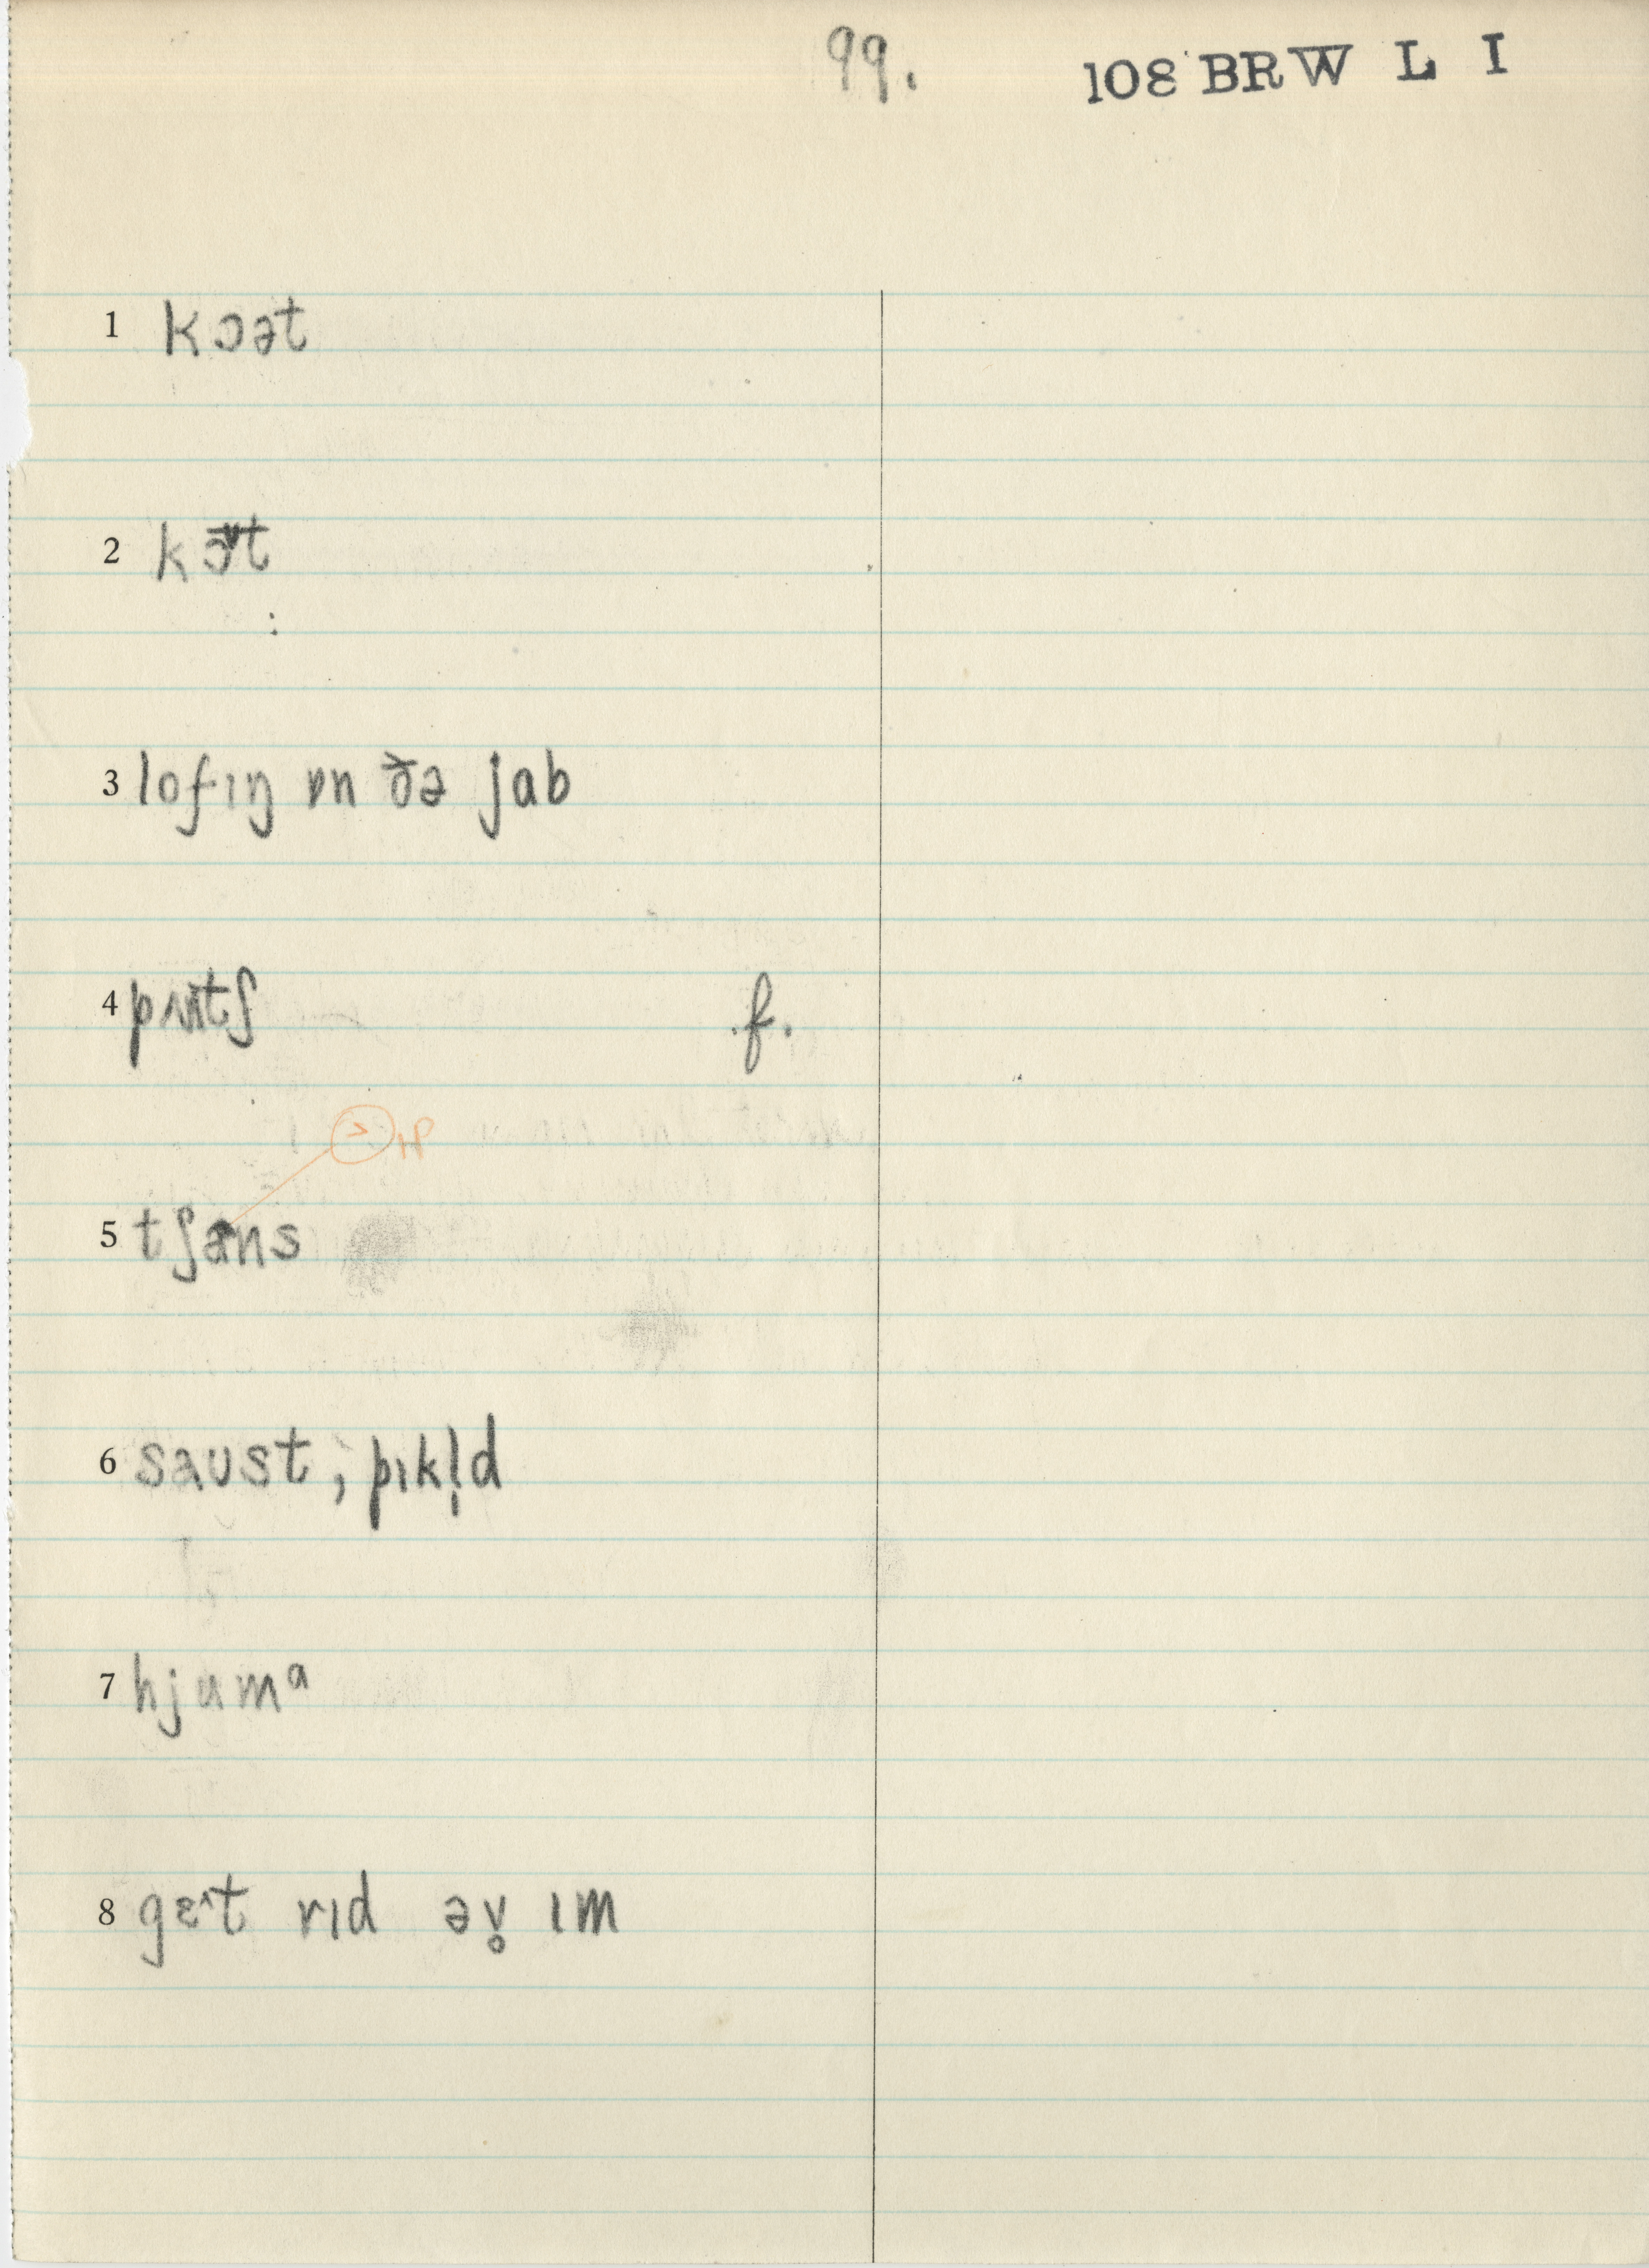 99. 108 BRW L I
1 kɔət
2 kɔt
3 lofɪŋ ɒn ðə jab
4 pʌntʃ f.
> HP
5 tʃans
6 saust, pɪkl̩d
7 hjumᵅ
8 gɛ^t rɪd əv̥ ɪm